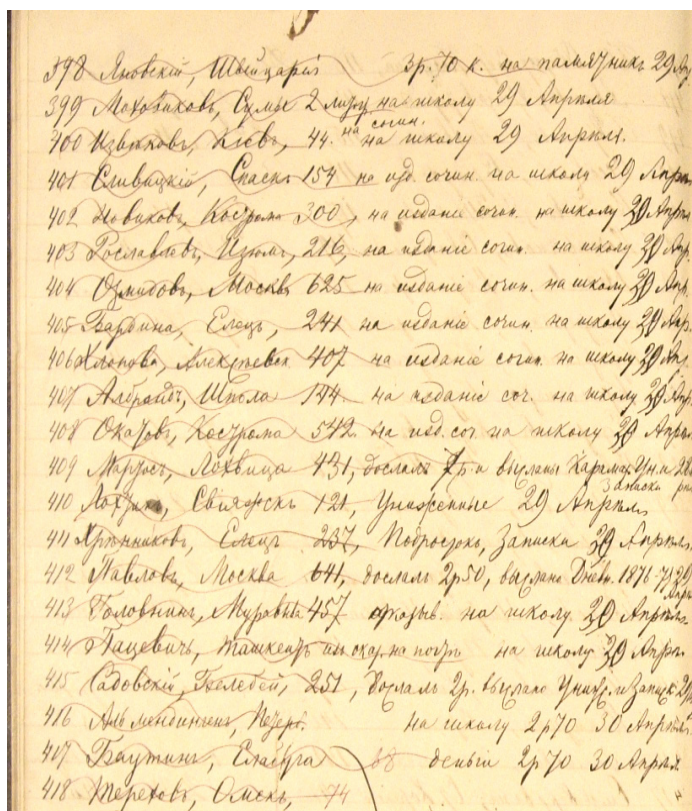 398 Яновскій, Швейцарія 3 р. 70 к. на памятникъ 29 Ап
399 Моховиковъ, Сумы 2 на школу 29 Апрѣля
400 Извѣковъ, Кіевъ, 44. на сочин. на школу 29 Апрѣля.
401 Сливицкій, Спаск. 154 на изд. сочин. на школу 29 Апрѣл
402 Новиковъ, Кострома 300, на изданіе сочин. на школу 29 Апрѣл
403 Рославлевъ, Изюмъ, 216, на изданіе сочин. на школу 29 Апр.
404 Озмидовъ, Москва 625 на изданіе сочин. на школу 29 Апр.
405 Елецъ, 241 на изданіе сочин. на школу 29 Апр.
406 407 на изданіе сочин. на школу 29 Ап.
407 Шпола 144 на изданіе соч. на школу 29 Апр.
408 Окатовъ, Кострома 542 на изд. соч. на школу 29 Апрѣл
409 Лохвица 431, дослалъ и высланы Карамаз. Ун. и
Записки
410 Свіяжскъ 121, Униженные 29 Апрѣль
411 Хрѣнниковъ, Елецъ 237, Подростокъ, Записки 29 Апрѣль
412 Павловъ, Москва 641, дослалъ 2 р 50, выслано Дневн. 1876-7 29
Апрѣл
413 Головнинъ, 457 на школу. 29 Апрѣль
414 Пацевичъ, Ташкентъ на школу 29 Апрѣл.
415 Садовскій, Белебей, 251, дослалъ 2 р. выслано Униж. и Записк
416 на школу 2 р 70 30 Апрѣля
417 Баутинъ, Елабуга 68 деньги 2 р 70 30 Апрѣля
418 Тереховъ, Омскъ, 74